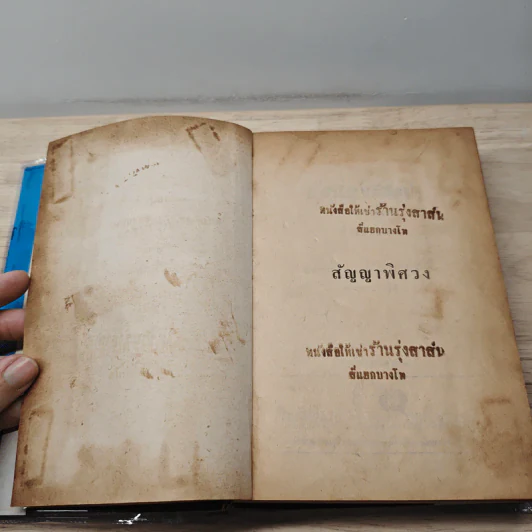 หนังสือให้เช่าร้านรุ่งสาส์น
สี่แยกบางโพ
สัญญาพิศวง
หนังสือให้เช่าร้านรุ่งสาส์น
สี่แยกบางโพ